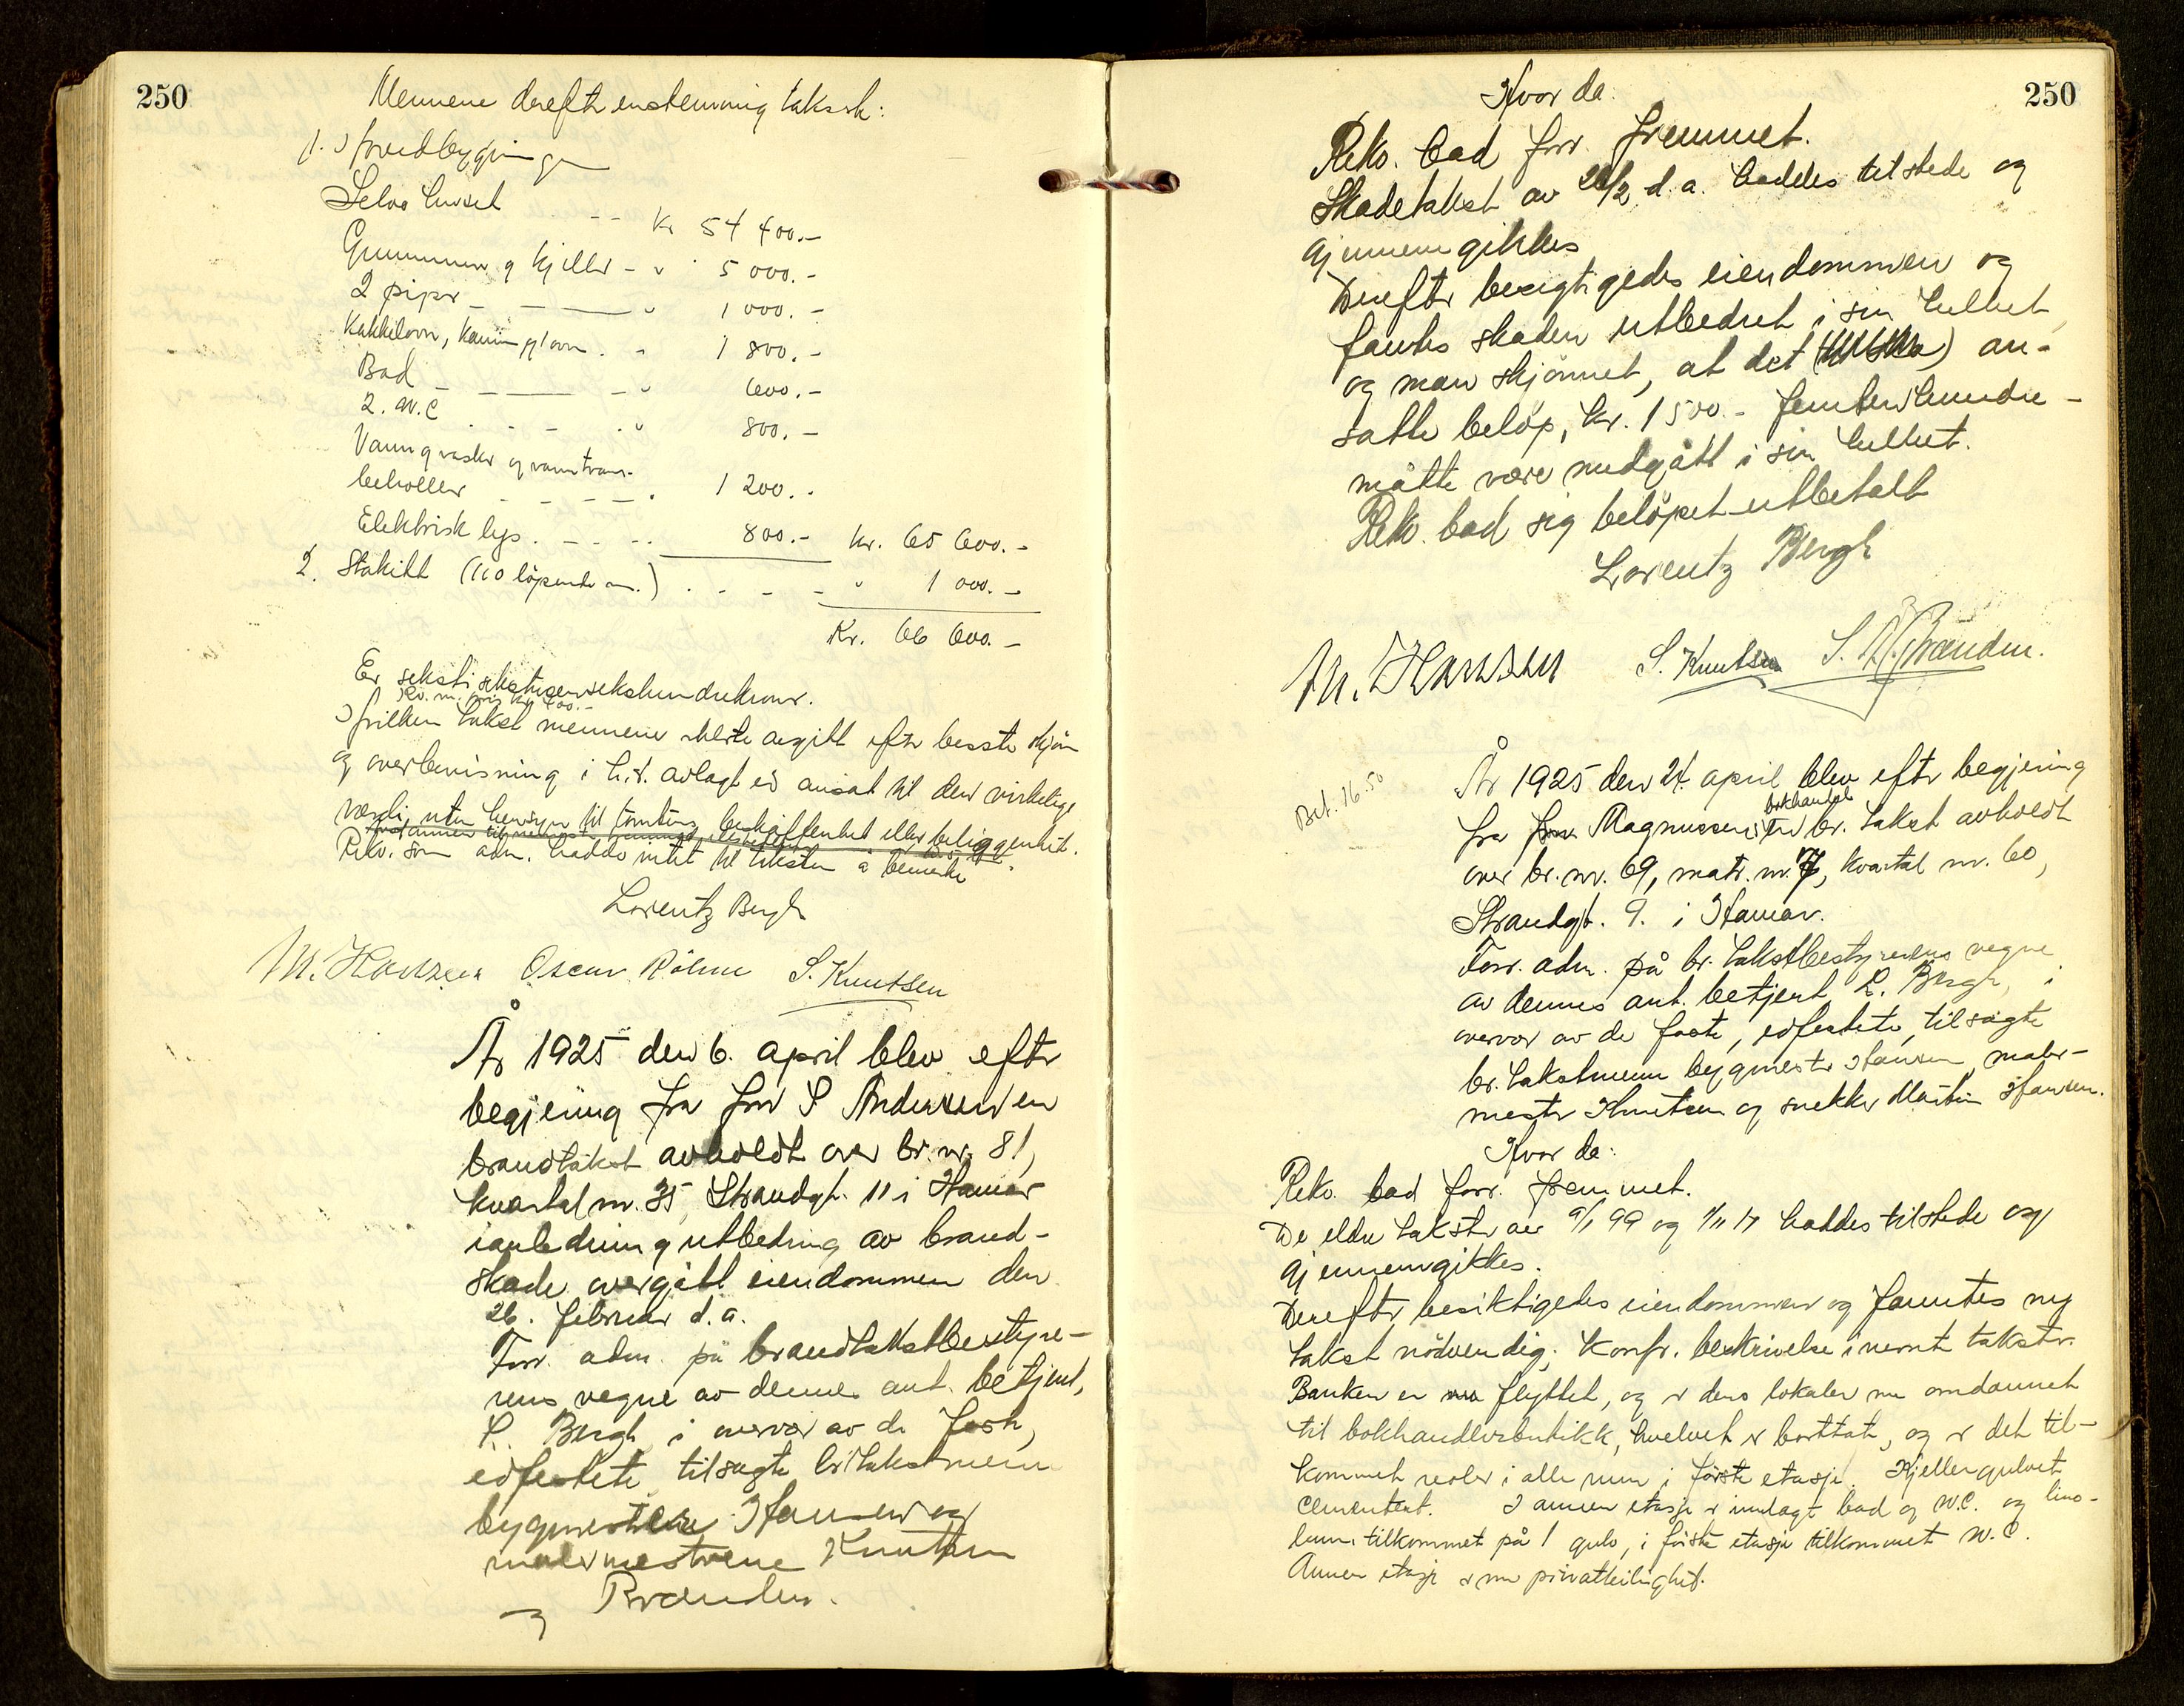 250
Mennene derefter enstemmig takserte:
1.) Hovedbygningen
Selve huset - - Kr 54 400.-
Grunnmur og kjeller - " 5 000.-
2 piper - " 1 000.-
Kakkelovn, kamin og ovn . " 1 800.-
Bad - " 600.-
2. W.C. " 800.-
Vann og vasker og varmtvanns-
beholder - - - - 1 200.-
Elektrisk lys. - - - 800.- kr. 65 600.-
2. Stakitt (110 löpende m.) . - - - " 1 000.-
Kr. 66 600.-
Er sekstisekstusensekshundrekroner.
Hvilken takst mennene erklærte avgitt efter beste skjön
og overbevisning i h.t. avlagt ed ansat til den virkelige
verdi uten hensyn til tomtens beskaffenhet eller beliggenhet.
Rekv. som adm. hadde intet til taksten å bemerke
Lorentz Bergh
M. Hansen Oscar Röhne S. Knutsen
År 1925 den 6. april blev efter
begjering fra fru S Andersen en
brandtakst avholdt over br.nr. 81,
kvartal nr. 35, Strandgt. 11 i Hamar
i anledning utbedring av brand-
skade overgått eiendommen den
26. februar d.a.
Forr. adm. på brandtakstbestyre-
rens vegne av dennes aut. betjent,
L. Bergh i overvær av de faste,
edfestete tilsagte br.takstmenn
bygmester Hansen og
malermestrene Knutsen
og Brænden.
250
Hvor da:
Rekv. bad forr. fremmet.
Skadetakst av 28/2 d.a. haddes tilstede og
gjennemgikkes
Derefter besigtigedes eiendommen og
fantes skaden utbedret i sin helhet,
og man skjönnet, at det an-
satte belöp, kr. 1500.- femtenhundre -
måtte være medgått i sin helhet.
Rekv. bad sig belöpet utbetalt
Lorentz Bergh
M. Hansen S. Knutsen S. Brænden.
Bet. 16.50
År 1925 den 24. april blev efter begjering
bokhandel
fra Magnussens en br. takst avholdt
over br. nr. 69, matr. nr. 7, kvartal nr. 60,
Strandgt. 9. i Hamar.
Forr. adm. på br. takstbestyrerens vegne
av dennes aut. betjent L. Bergh, i
overvær av de faste, edfestete, tilsagte
br. takstmenn bygmester Hansen, maler-
mester Knutsen og snekker Martin Hansen.
Hvor da:
Rekv. bad forr. fremmet.
De eldre takster av 9/1 99 og 1/11 17 haddes tilstede og
gjennemgikkes.
Derefter besiktigedes eiendommen og fantes ny
takst nödvendig. Konfr. beskrivelse i nevnte takster.
Banken er flyttet, og er dens lokaler nu omdannet
til bokhandlerbutikk, hvelvet er borttatt, og er det til-
kommet reoler i alle rum i förste etasje. Kjellergulvet
cementert. I annen etasje er innlagt bad og W.C. og lino-
leum tilkommet på 1 gulv, i förste etasje tilkommet W.C.
Annen etasje er nu privatleilighet.